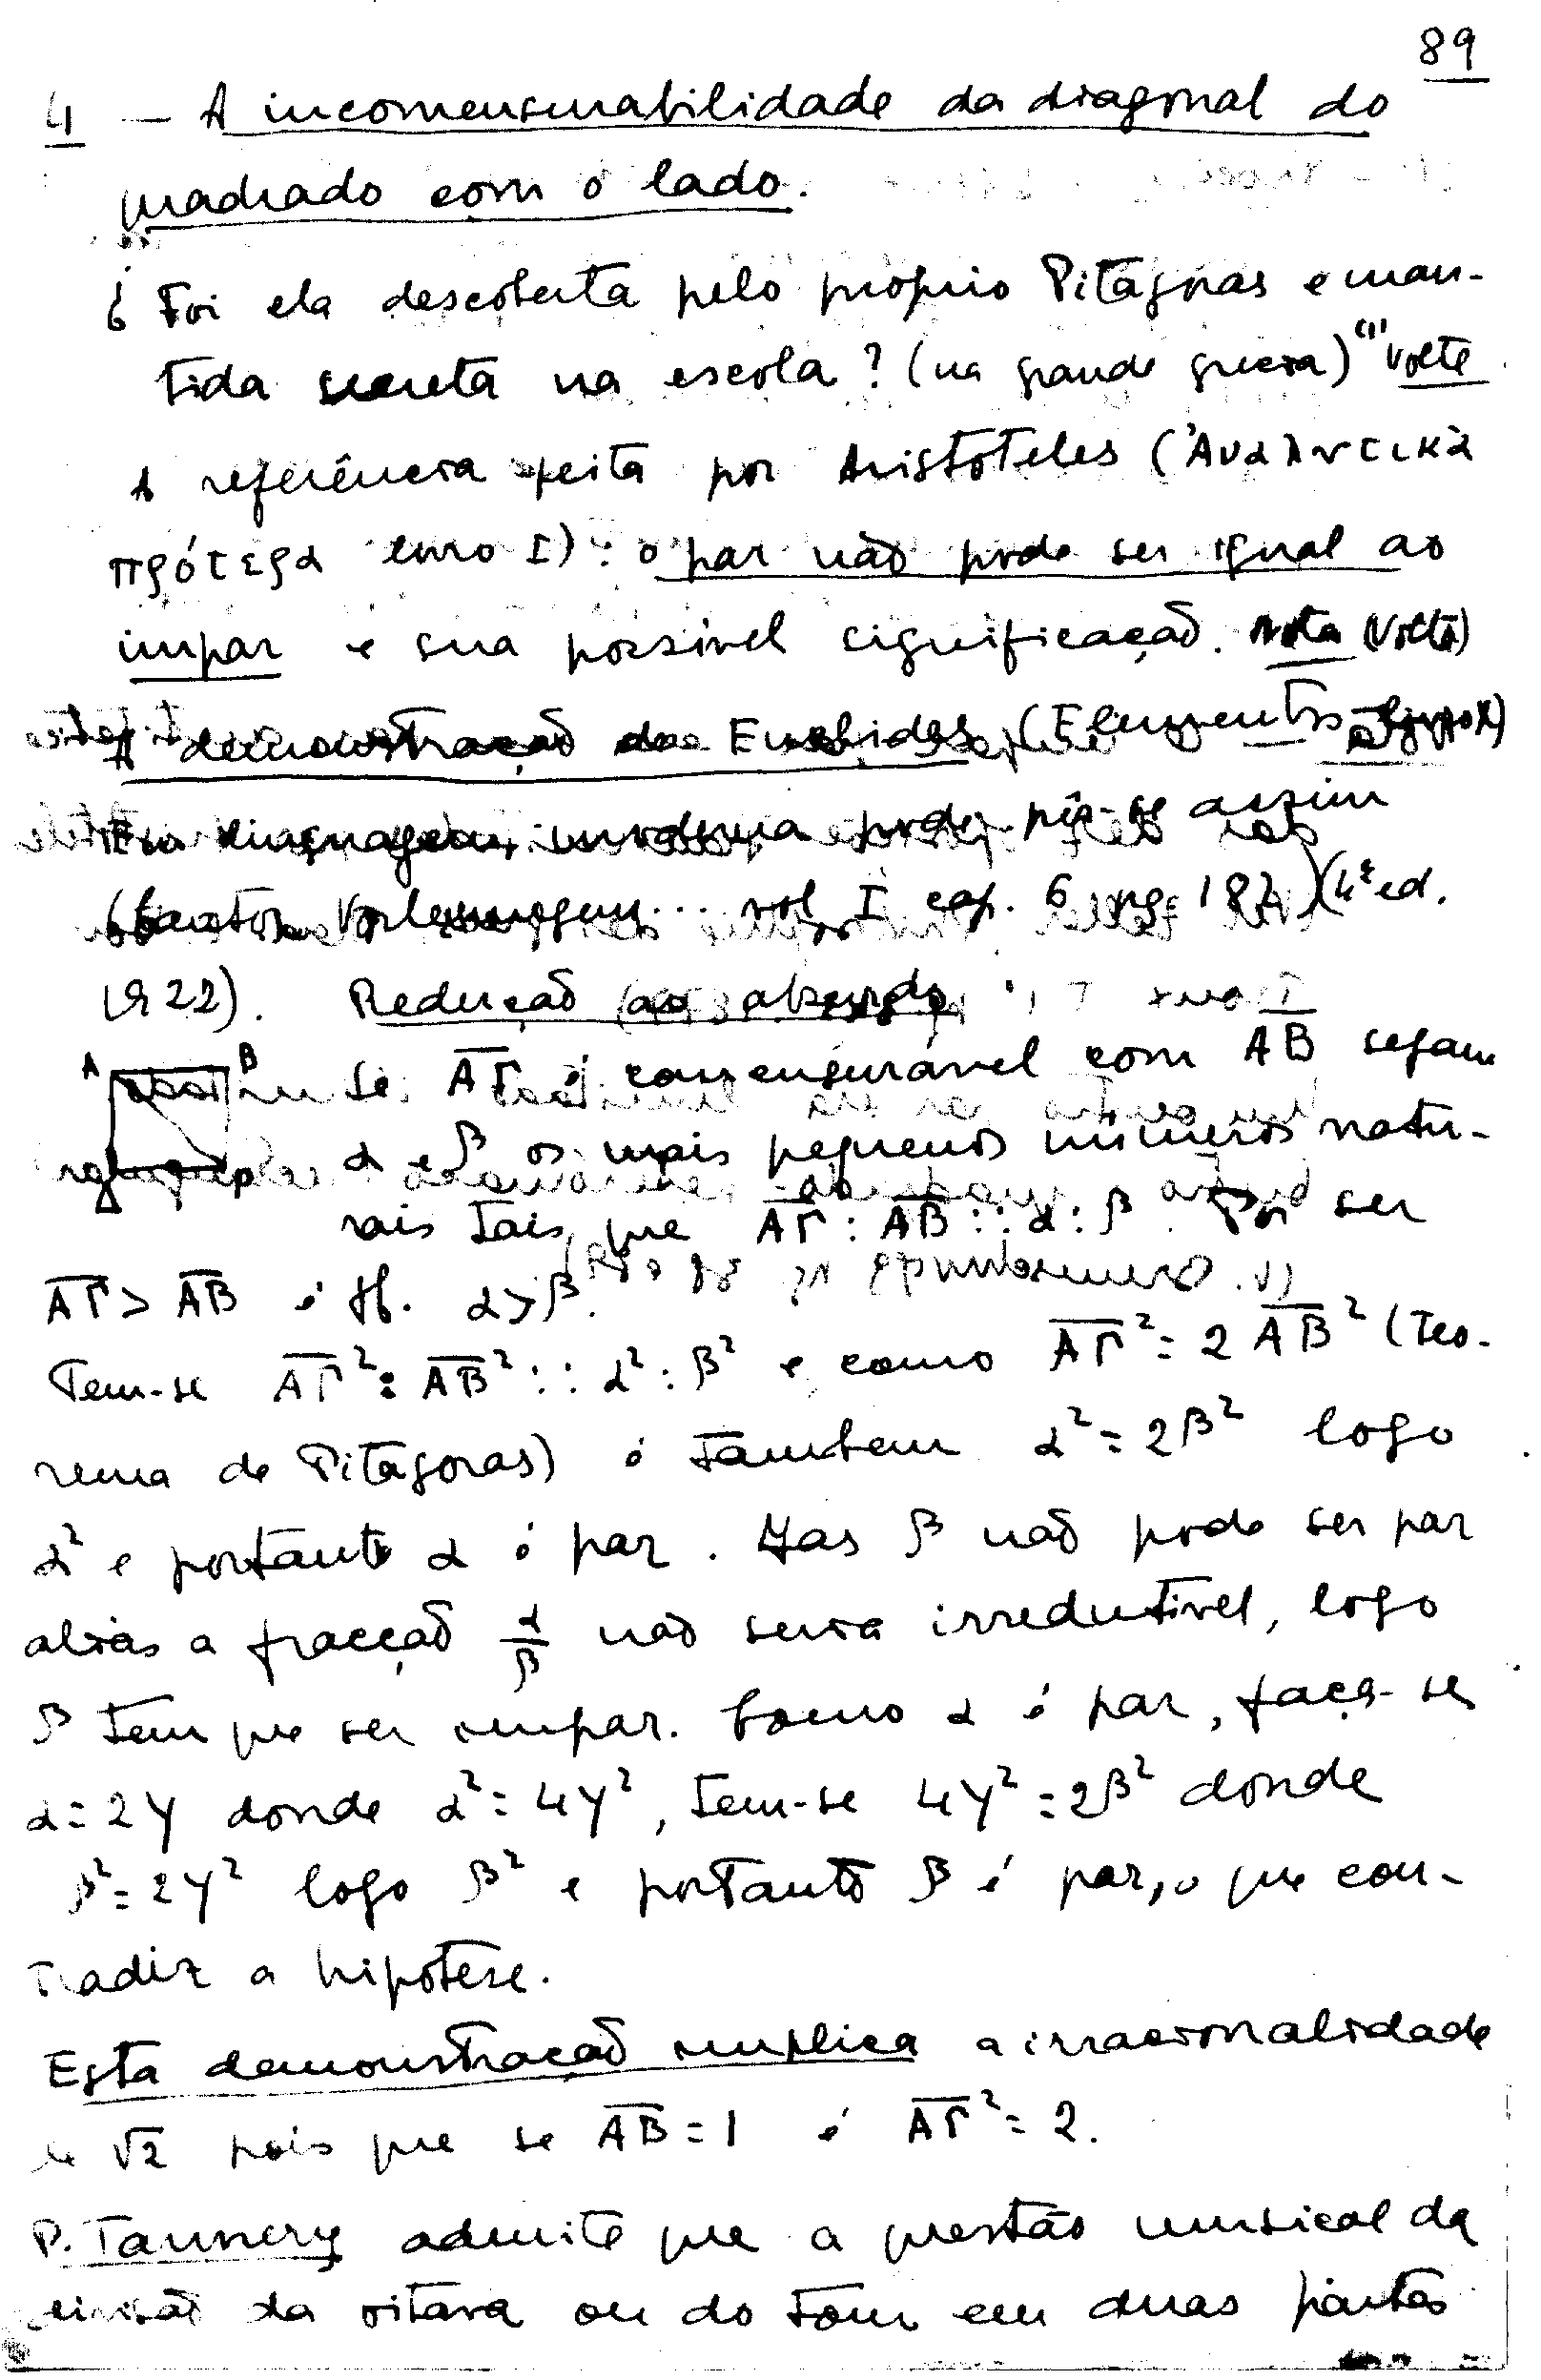 89
4 — A incomensurabilidade da diagonal do
quadrado com o lado.
¿ Foi ela descoberta pelo proprio Pitágoras e man-
tida secreta na escola? (na grande grecia) (1) Volte
A referência feita por Aristoteles (Ἀναλντικὰ
πρότερα livro I): o par não pode ser igual ao
impar e sua possivel significação. Nota (Volte)
A demonstração de Euclides (Elementos livro X)
Em linguagem moderna pode pôr-se assim
(Cantor Vorlesungen... vol I cap. 6 pg. 182) (4ª ed.
1922). Redução ao absurdo
A B se AΓ é comensurável com AB sejam
α e β os mais pequenos números natu-
Δ Γ
rais tais que AΓ : AB :: α : β. Por ser
AΓ > AB é α > β.
Tem-se AΓ² : AB² :: α² : β² e como AΓ² = 2 AB² (Teo-
rema de Pitágoras) é tambem α² = 2β² logo
α² e portanto α é par. Mas β não pode ser par
aliás a fracção α/β não seria irredutivel, logo
β tem que ser impar. Como α é par, faça-se
α = 2γ donde α² = 4γ², tem-se 4γ² = 2β² donde
β² = 2γ² logo β² e portanto β é par, o que con-
tradiz a hipótese.
Esta demonstração implica a irracionalidade
de √2 pois que se AB = 1 é AΓ² = 2.
P. Tannery admite que a questão musical da
divisão da oitava ou do tom em duas partes